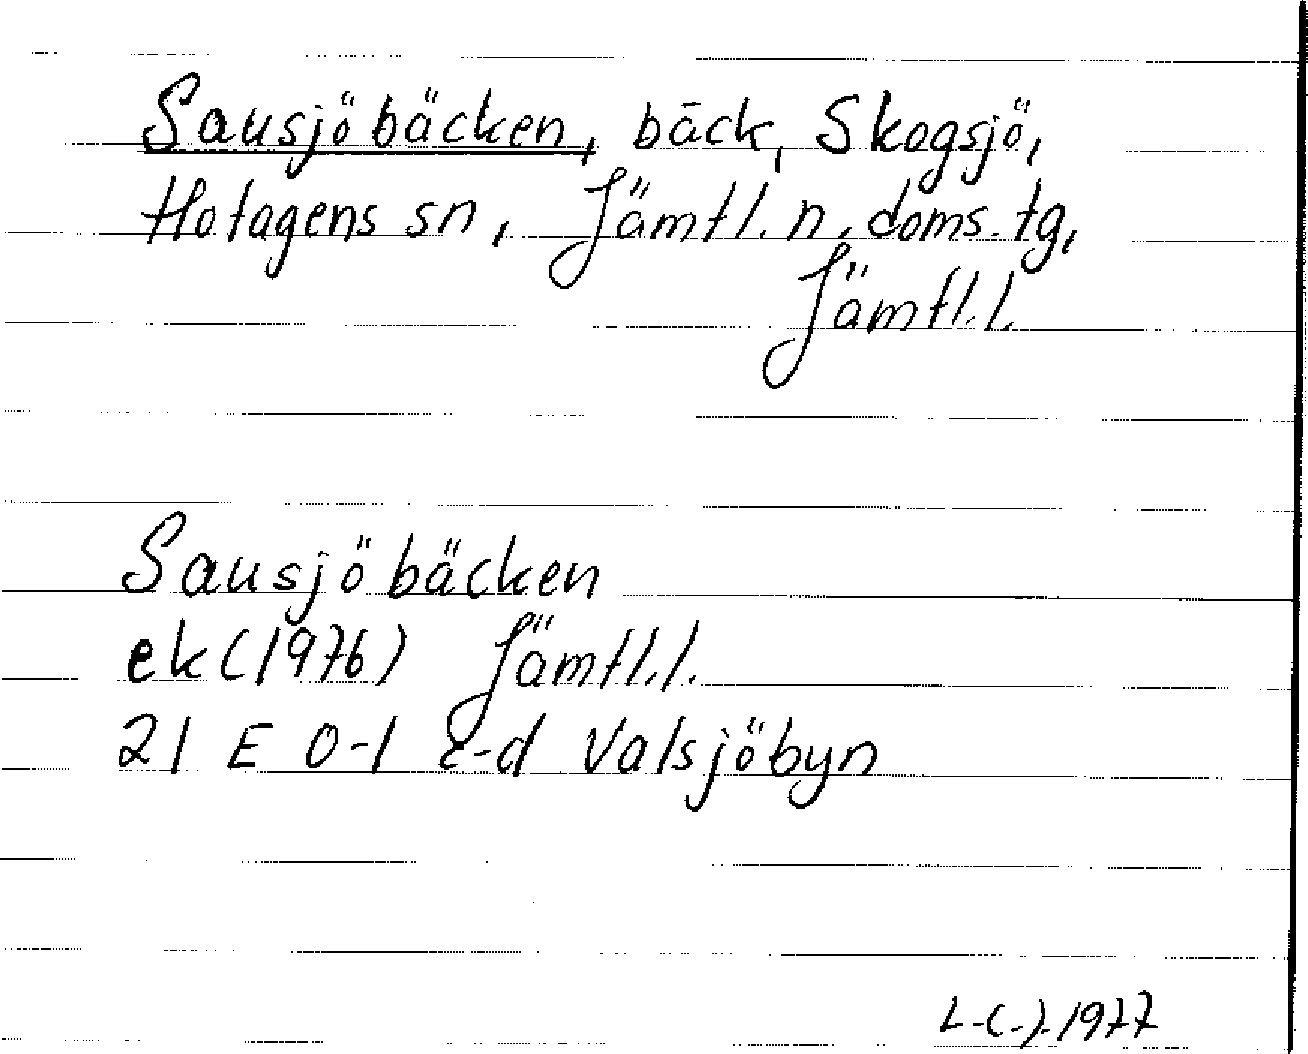 Sausjöbäcken, bäck, Skogsjö,
Hotagens sn, Jämtl. n. doms. tg,
Jämtl.l.
Sausjöbäcken
ek (1976) Jämtl.l.
21 E 0-1 c-d Valsjöbyn
L-(-)-1977